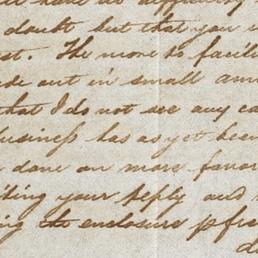 doubt but that you
The more to facili
out in small am
that I do not see any ca
business has as yet been
done on more favor
your reply and
ing the enclosure